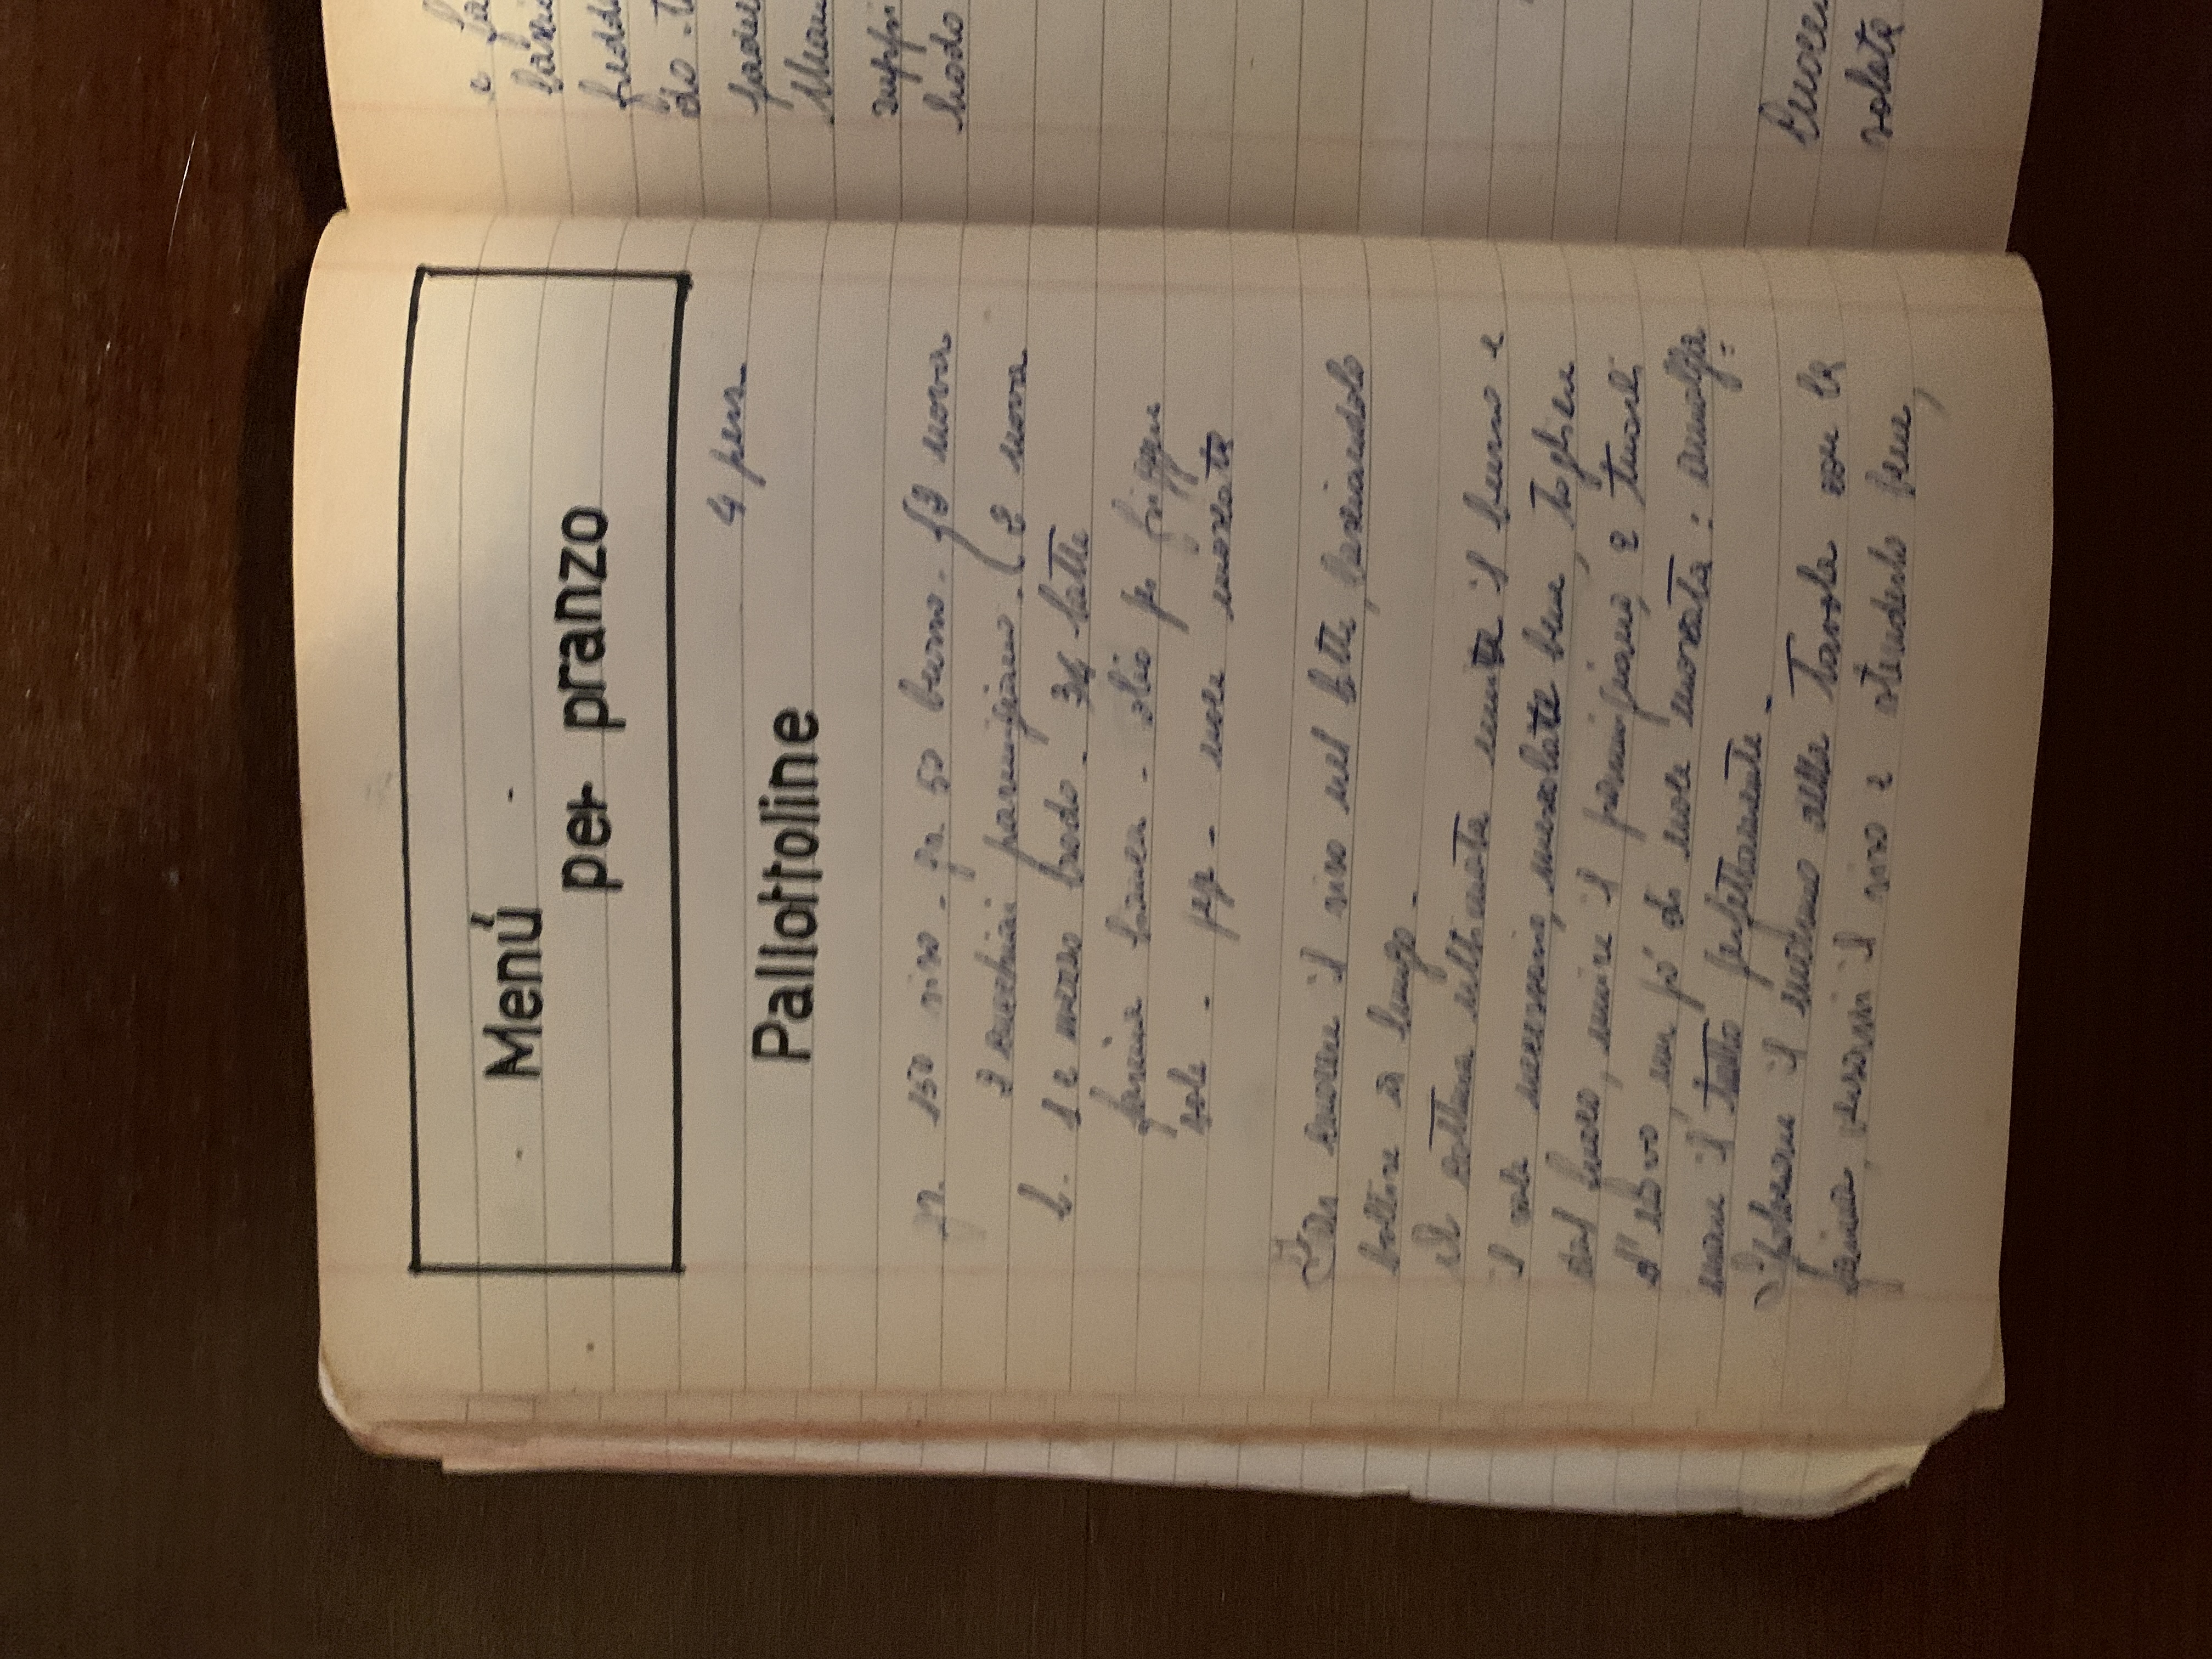 Menú
per pranzo
4 pers.
Pallottoline
gr. 150 riso - gr. 50 burro - { 2 uova
2 cucchiai parmigiano - ( 2 uova
l. 1 e mezzo brodo - 3/4 latte
farina bianca - olio per friggere
sale - pepe - noce moscata
Far cuocere il riso nel latte, lasciandolo
bollire a lungo -
A cottura ultimata unite il burro e
il sale necessario, mescolate bene, togliere
dal fuoco, unire il parmigiano, 2 tuorli
d'uovo, un pó di noce moscata : amalga=
mare il tutto perfettamente -
Spolverare il marmo della tavola con la
farina, versarvi il riso e stenderlo bene,
e fa
lascia
fredd
do - t
padel
Man
zuppi
brodo
Cuocer
salata